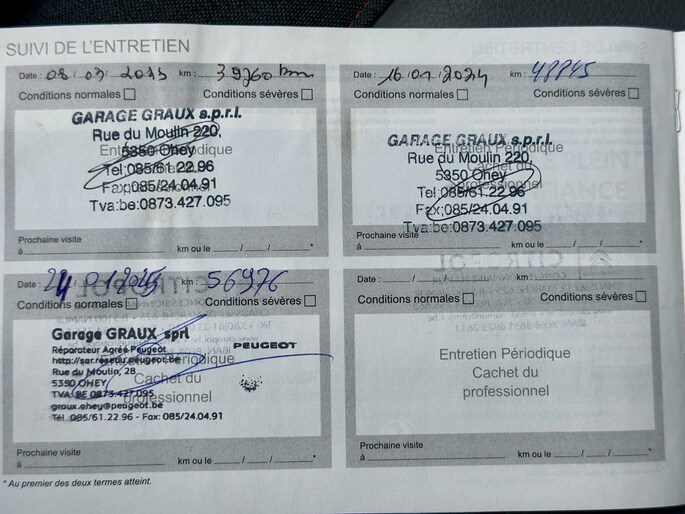 SUIVI DE L'ENTRETIEN
Date : 08 / 03 / 2023 km : 39260 km
Conditions normales Conditions sévères :
GARAGE GRAUX s.p.r.l.
Rue du Moulin 220,
Entretien Périodique
5350 Ohey
Tel:085/61.22.96
Fax:085/24.04.91
Tva:be:0873.427.095
Prochaine visite
à km ou le / / *
Date : 16 / 01 / 2024 km : 48845
Conditions normales Conditions sévères :
GARAGE GRAUX s.p.r.l.
Entretien Périodique
Rue du Moulin 220,
Cachet du
5350 Ohey
professionnel
Tel:085/61.22.96
Fax:085/24.04.91
Tva:be:0873.427.095
Prochaine visite
à km ou le / / *
Date : 24 / 01 / 2025 km : 56976
Conditions normales Conditions sévères :
Garage GRAUX sprl
Réparateur Agréé Peugeot
PEUGEOT
http://sar.reseau.peugeot.be
Entretien Périodique
Rue du Moulin, 28
Cachet du
5350 OHEY
TVA: BE 0873.427.095
professionnel
graux.ohey@peugeot.be
Tél. 085/61.22.96 - Fax: 085/24.04.91
Prochaine visite
à km ou le / / *
Date : / / km :
Conditions normales Conditions sévères :
Entretien Périodique
Cachet du
professionnel
Prochaine visite
à km ou le / / *
* Au premier des deux termes atteint.